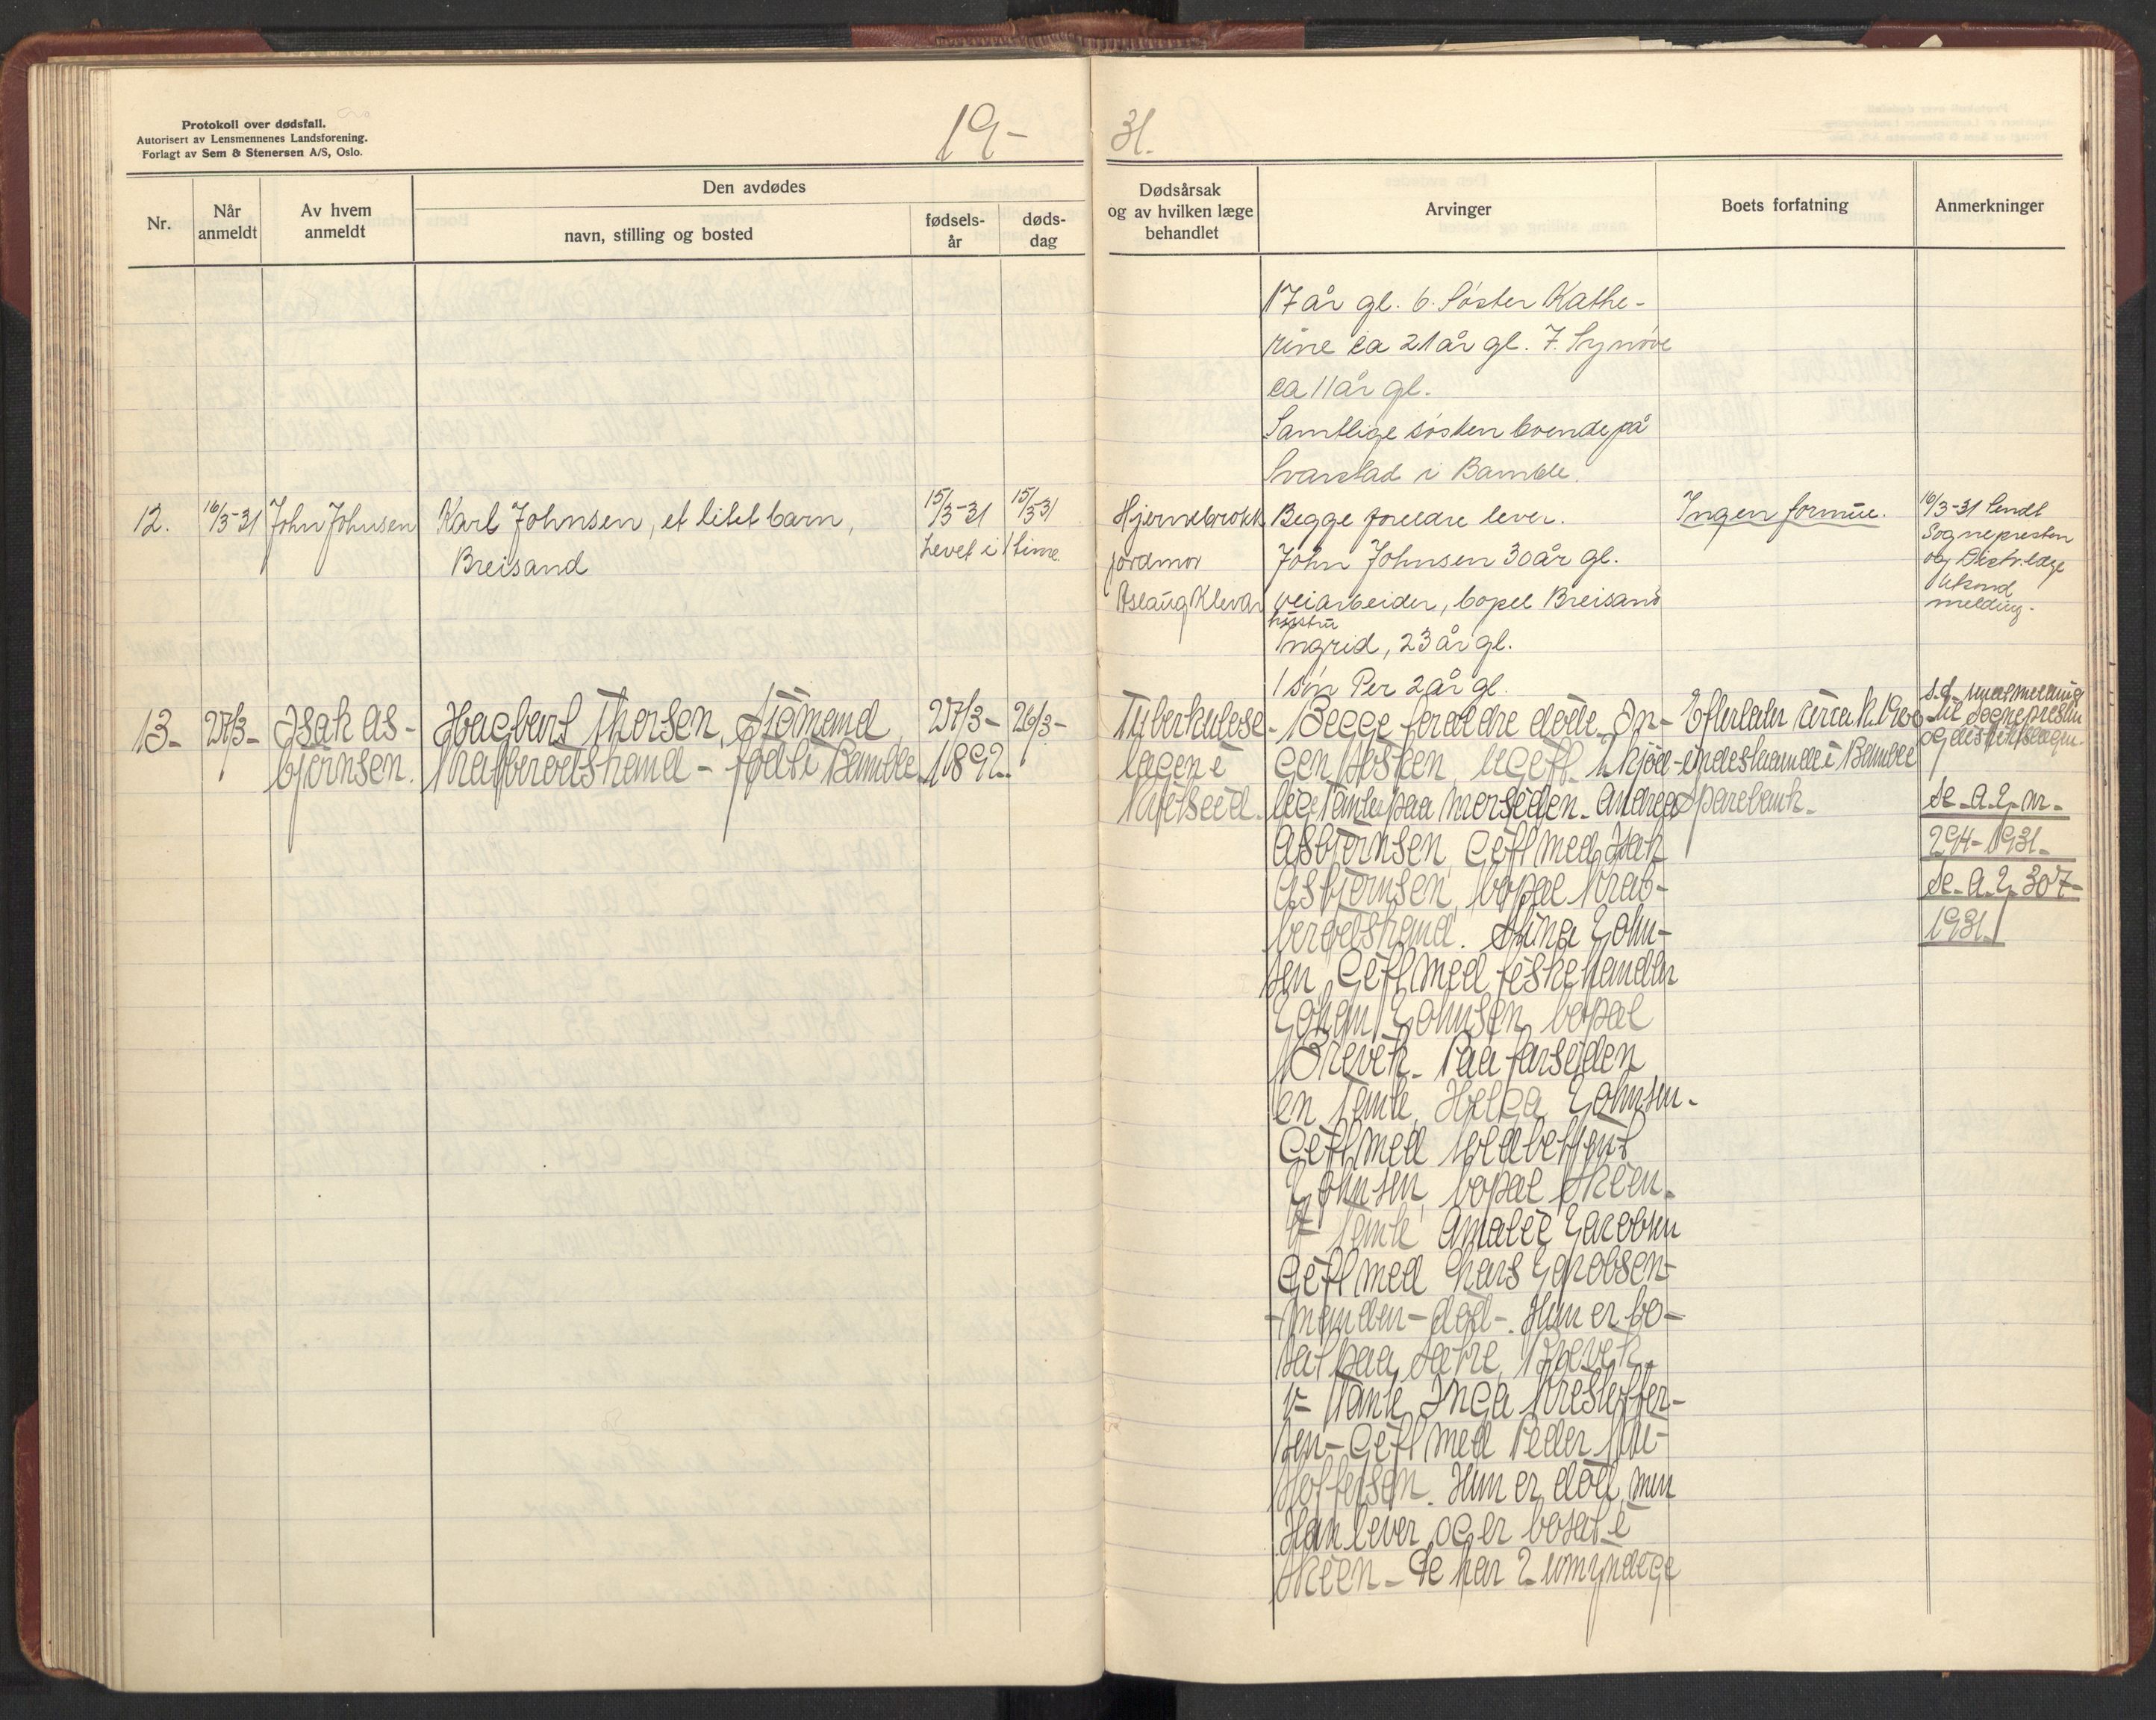 Protokoll over dødsfall.
Autorisert av Lensmennenes Landsforening.
Forlagt av Sem & Stenersen A/S, Oslo.
19- 31.
Nr.
Når anmeldt
Av hvem anmeldt
Den avdødes
navn, stilling og bosted
fødsels-år
døds-dag
Dødsårsak og av hvilken læge behandlet
Arvinger
Boets forfatning
Anmerkninger
17 år gl. 6. Søster Kathe-
rine ca 21 år gl. 7. Synøve
ca 11 år gl.
Samtlige søsken boende på
Svarstad i Bamble.
12.
16/3-31
John Johnsen
Karl Johnsen, et litet barn,
Breisand
15/3-31
15/3-31
Levet i 1 time.
Hjernebrokk
jordmor
Aslaug Klevar
Begge foreldre lever.
John Johnsen 30 år gl.
veiarbeider, bopel Breisand
hustru
Ingrid, 23 år gl.
1 søn Per 2 år gl.
Ingen formue.
16/3-31 Sendt
Sognepresten
og Distr.læge
melding.
13-
27/3-
Isak As-
bjørnsen.
Hagbart Thorsen, Sjømand
Krabberødstrand - født i Bamble
27/3-
1892.
26/3-
Tuberkulose-
lagen i
Begge foreldre døde. In-
gen søsken. Ugift. 2 kjød-
lige Tanter paa morsiden. Andrea
Asbjørnsen, Gift med Isak
Asbjørnsen, bopal Krab-
berødstrand. Stina John-
sen, Gift med fiskehandler
Johan Johnsen, bopal
Brevik. Paa farsiden
en Tante, Helga Johnsen-
Gift med
Johnsen, bopal Skien.
1- Tante Amalie Jacobsen
Gift med Lars Jacobsen-
-manden-død-. Hun er bo-
sat paa Sætre, Brevik.
1- Tante Inga Kristoffer-
sen- Gift med Peder Kri-
stoffersen. Hun er død, men
Han lever og er bosat i
Skien- De har 2 umyndige
Efterlater circa kr. 1900-
indestaaende i Bamble
Sparebank.
S.d. sendt melding
til sognepresten
og distriktslægen.
Se A. J. nr.
294-1931.
Se A. J. 307-
1931.